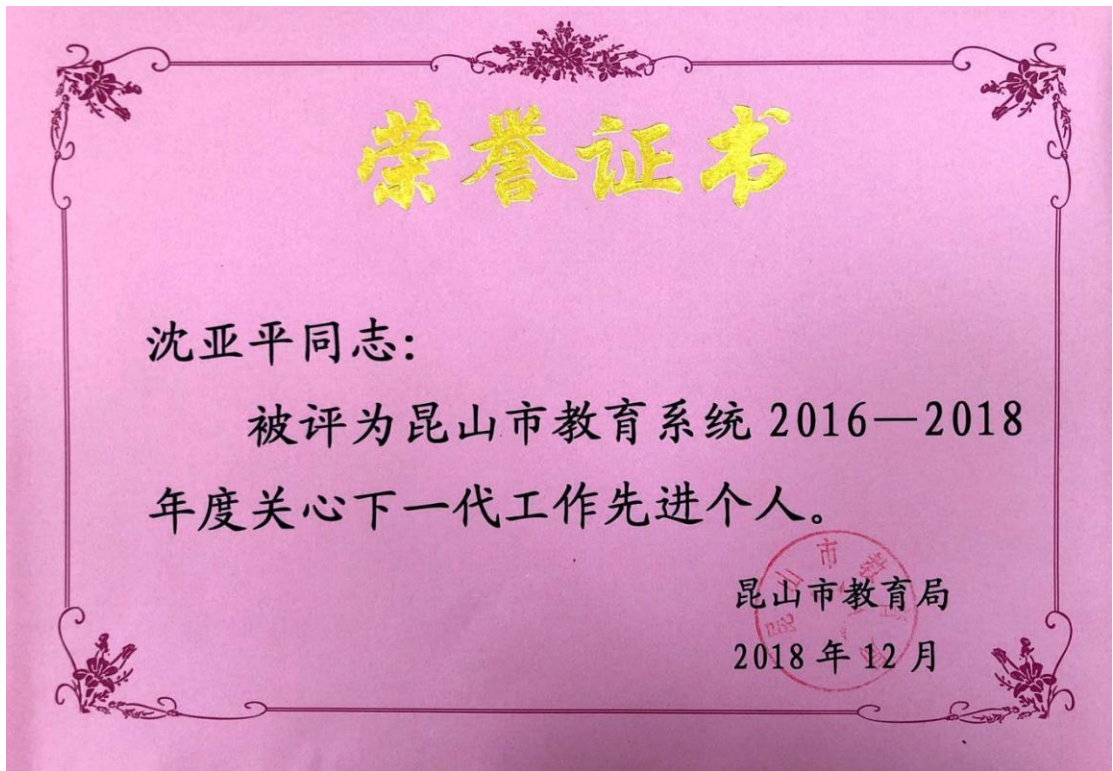 荣誉证书
沈亚平同志：
被评为昆山市教育系统 2016—2018
年度关心下一代工作先进个人。
昆山市教育局
2018 年 12 月